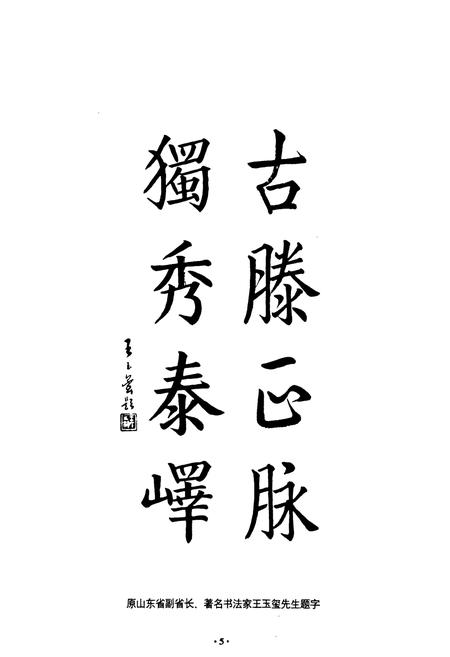 古滕正脉
獨秀泰嶧
王玉玺题
原山东省副省长、著名书法家王玉玺先生题字
·5·